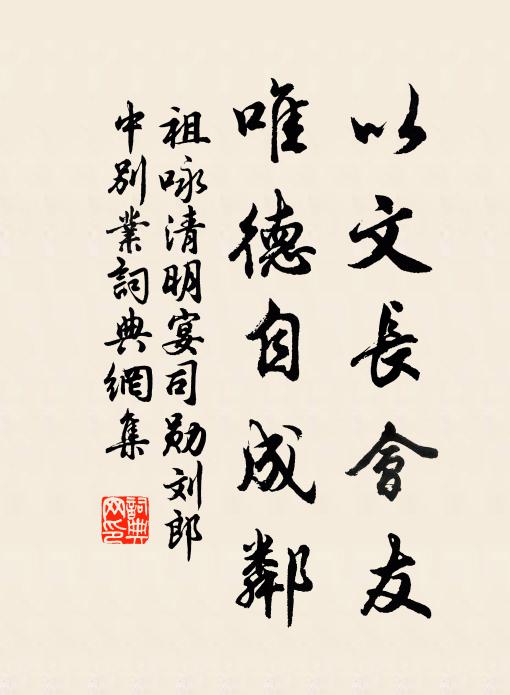 以文長會友
唯德自成鄰
祖咏清明宴司勋刘郎
中別業詞典網集
詞典
网印